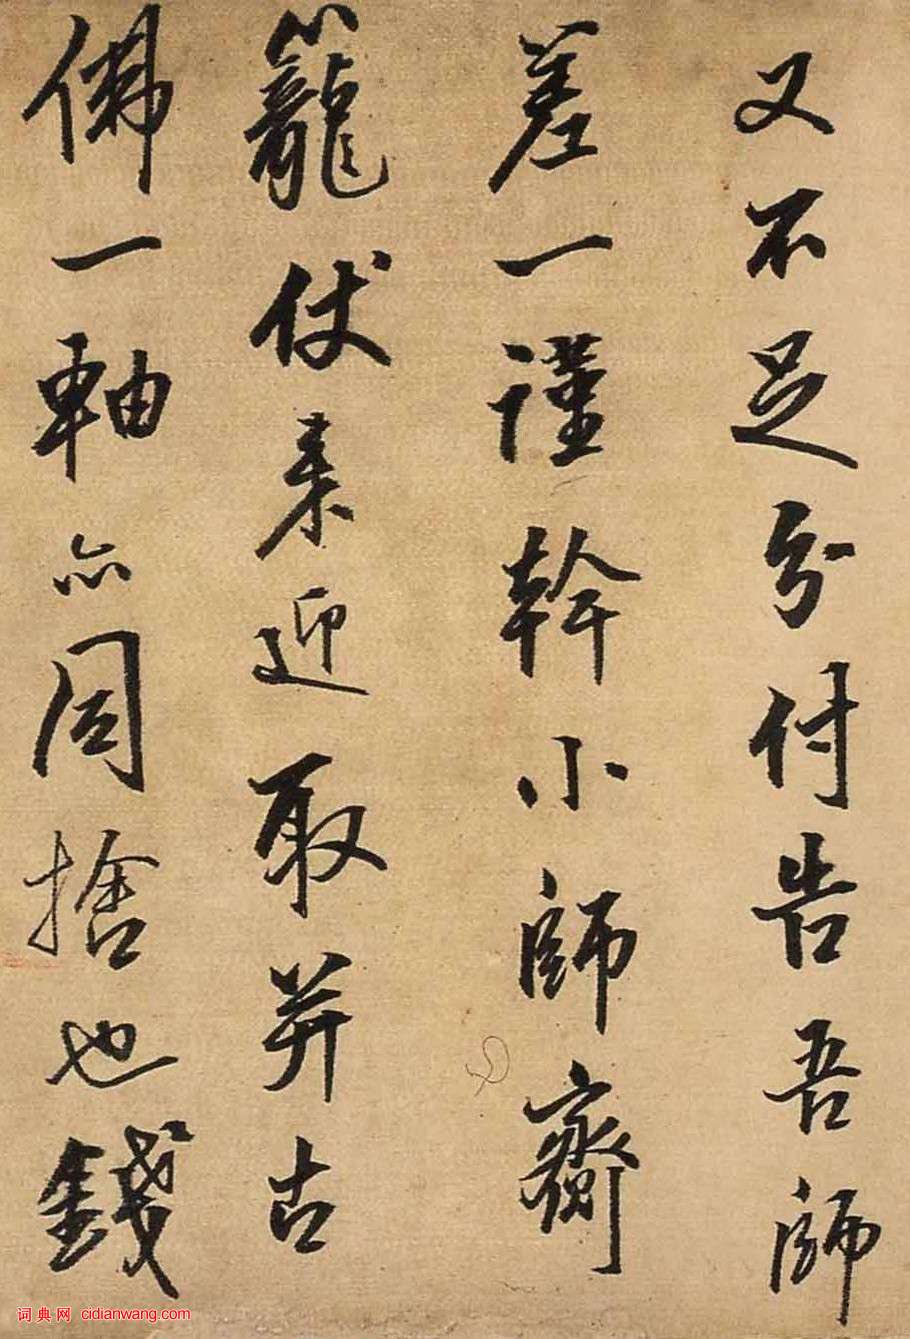 又不足分付告吾師
差一謹幹小師齎
籠仗來迎取并古
佛一軸亦同捨也錢
词典网 cidianwang.com